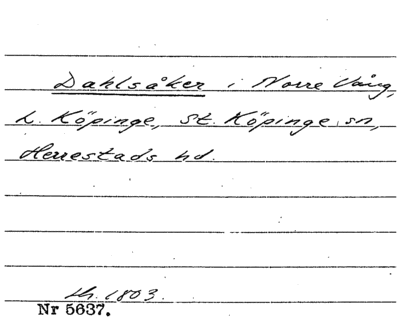 Dahlsåker i Norre Vång,
L. Köpinge, St. Köpinge sn,
Herrestads hd.
1803.
Nr 5637.